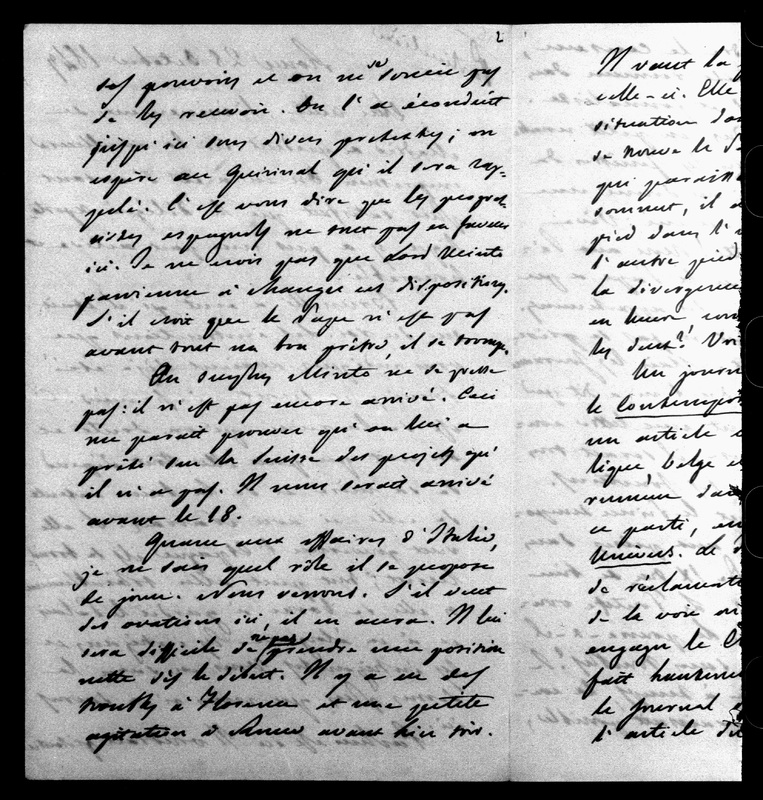 2
ses pouvoirs et on ne se soucie pas
de les recevoir. On l'a éconduit
jusqu'ici sous divers prétextes; on
espère au Quirinal qu'il sera rap-
pelé. C'est vous dire que les progres-
sistes espagnols ne sont pas en faveur
ici. Je ne crois pas que Lord Minto
parvienne à changer ces dispositions.
S'il croit que le Pape n'est pas
avant tout un bon prêtre, il se trompe.
Au surplus Minto ne se presse
pas: il n'est pas encore arrivé. Ceci
me paraît prouver qu'on lui a
prêté sur la Suisse des projets qu'
il n'a pas. Il nous serait arrivé
avant le 18.
Quant aux affaires d'Italie,
je ne sais quel rôle il se propose
de jouer. Nous verrons. S'il veut
des ovations ici, il en aura. Il lui
sera difficile de ne pas prendre une position
nette dès le début. Il y a eu des
troubles à Florence et une petite
agitation à avant hier soir.
Il vaut la
celle-ci. Elle
situation da
se trouve le
qui paraiss
sommet, il
pied dans l'
l'autre pied
la divergence
en
les deux? Voi
Un journ
le Contempor
un article
lique, belge et
dan
ce parti, en
Univers. Le
de réclamat
de la voie
engager le
fait hauteme
le journal
l'article